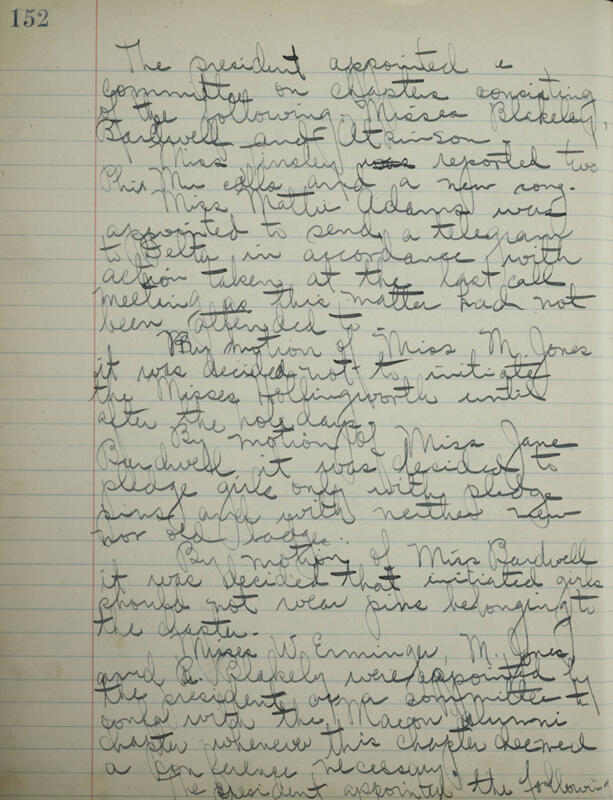 152
The president appointed a
committee on chapters consisting
of the following: Misses Blakeley,
Bardwell and Atkinson.
Miss Tinsley was reported two
Phi Mu calls and a new song.
Miss Mattie Adams was
appointed to send a telegram
to Delta in accordance with
action taken at the last call
meeting as this matter had not
been attended to.
By motion of Miss M. Jones
it was decided not to initiate
the Misses Hollingworth until
after the holidays.
By motion of Miss Jane
Bardwell it was decided to
pledge girls only with pledge
pins and with neither new
nor old badge.
By motion of Miss Bardwell
it was decided that initiated girls
should not wear pins belonging to
the chapter.
Misses W. Erminger, M. Jones,
and Blakely were appointed by
the president as a committee to
confer with the Macon Alumni
chapter whenever this chapter deemed
a conference necessary.
The president appointed the following